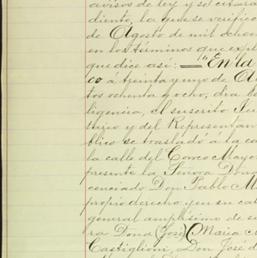 avisos de ley y se citara
diento, la que se verificó
de Agosto de mil ochoc
en los términos que expr
que dice así: — "En la
co á treinta y uno de A
tos ochenta y ocho, dia
ligencia, el suscrito Ju
trico y del Representan
blico se trasladó a la ca
la calle del Cinco Mayo
presente la Señora Du
cenciado Don Pablo M
propio derecho y en su ca
general amplísimo de su
ra Doña (José) Maria M
Castiglioni, Don José d